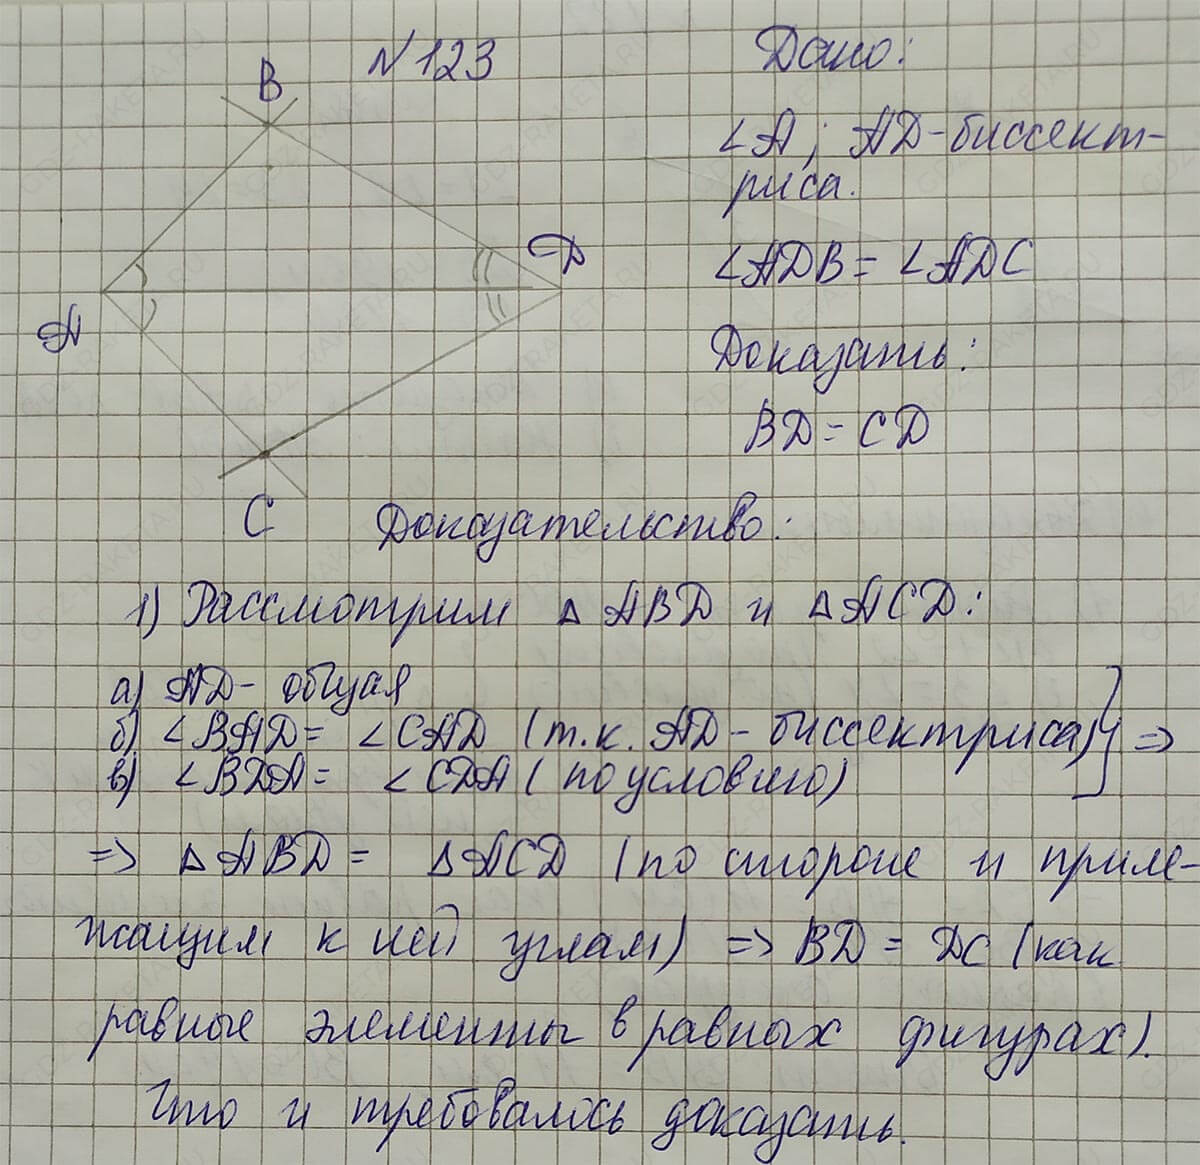 N 123
Дано:
∠A; AD - биссект-
риса.
∠ADB = ∠ADC
Доказать:
BD = CD
B
D
A
C
Доказательство:
1) Рассмотрим △ABD и △ACD:
а) AD - общая
б) ∠BAD = ∠CAD (т.к. AD - биссектриса) } =>
в) ∠BDA = ∠CDA (по условию)
=> △ABD = △ACD (по стороне и приле-
жащим к ней углам) => BD = DC (как
равные элементы в равных фигурах).
Что и требовалось доказать.